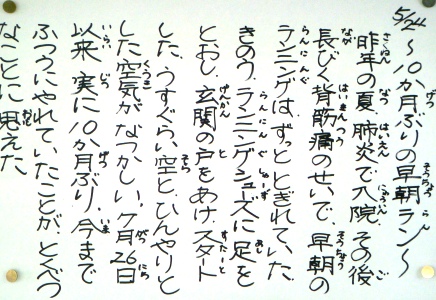 5/24
〜10か月ぶりの早朝ラン〜
昨年の夏、肺炎で入院、その後
長びく背筋痛のせいで、早朝の
ランニングは、ずっととぎれていた。
きのう、ランニングシューズに足を
とおし、玄関の戸をあけ、スタート
した。うすぐらい空と、ひんやりと
した空気がなつかしい。7月26日
以来、実に10か月ぶり。今まで
ふつうにやれていたことが、とくべつ
なことに思えた。